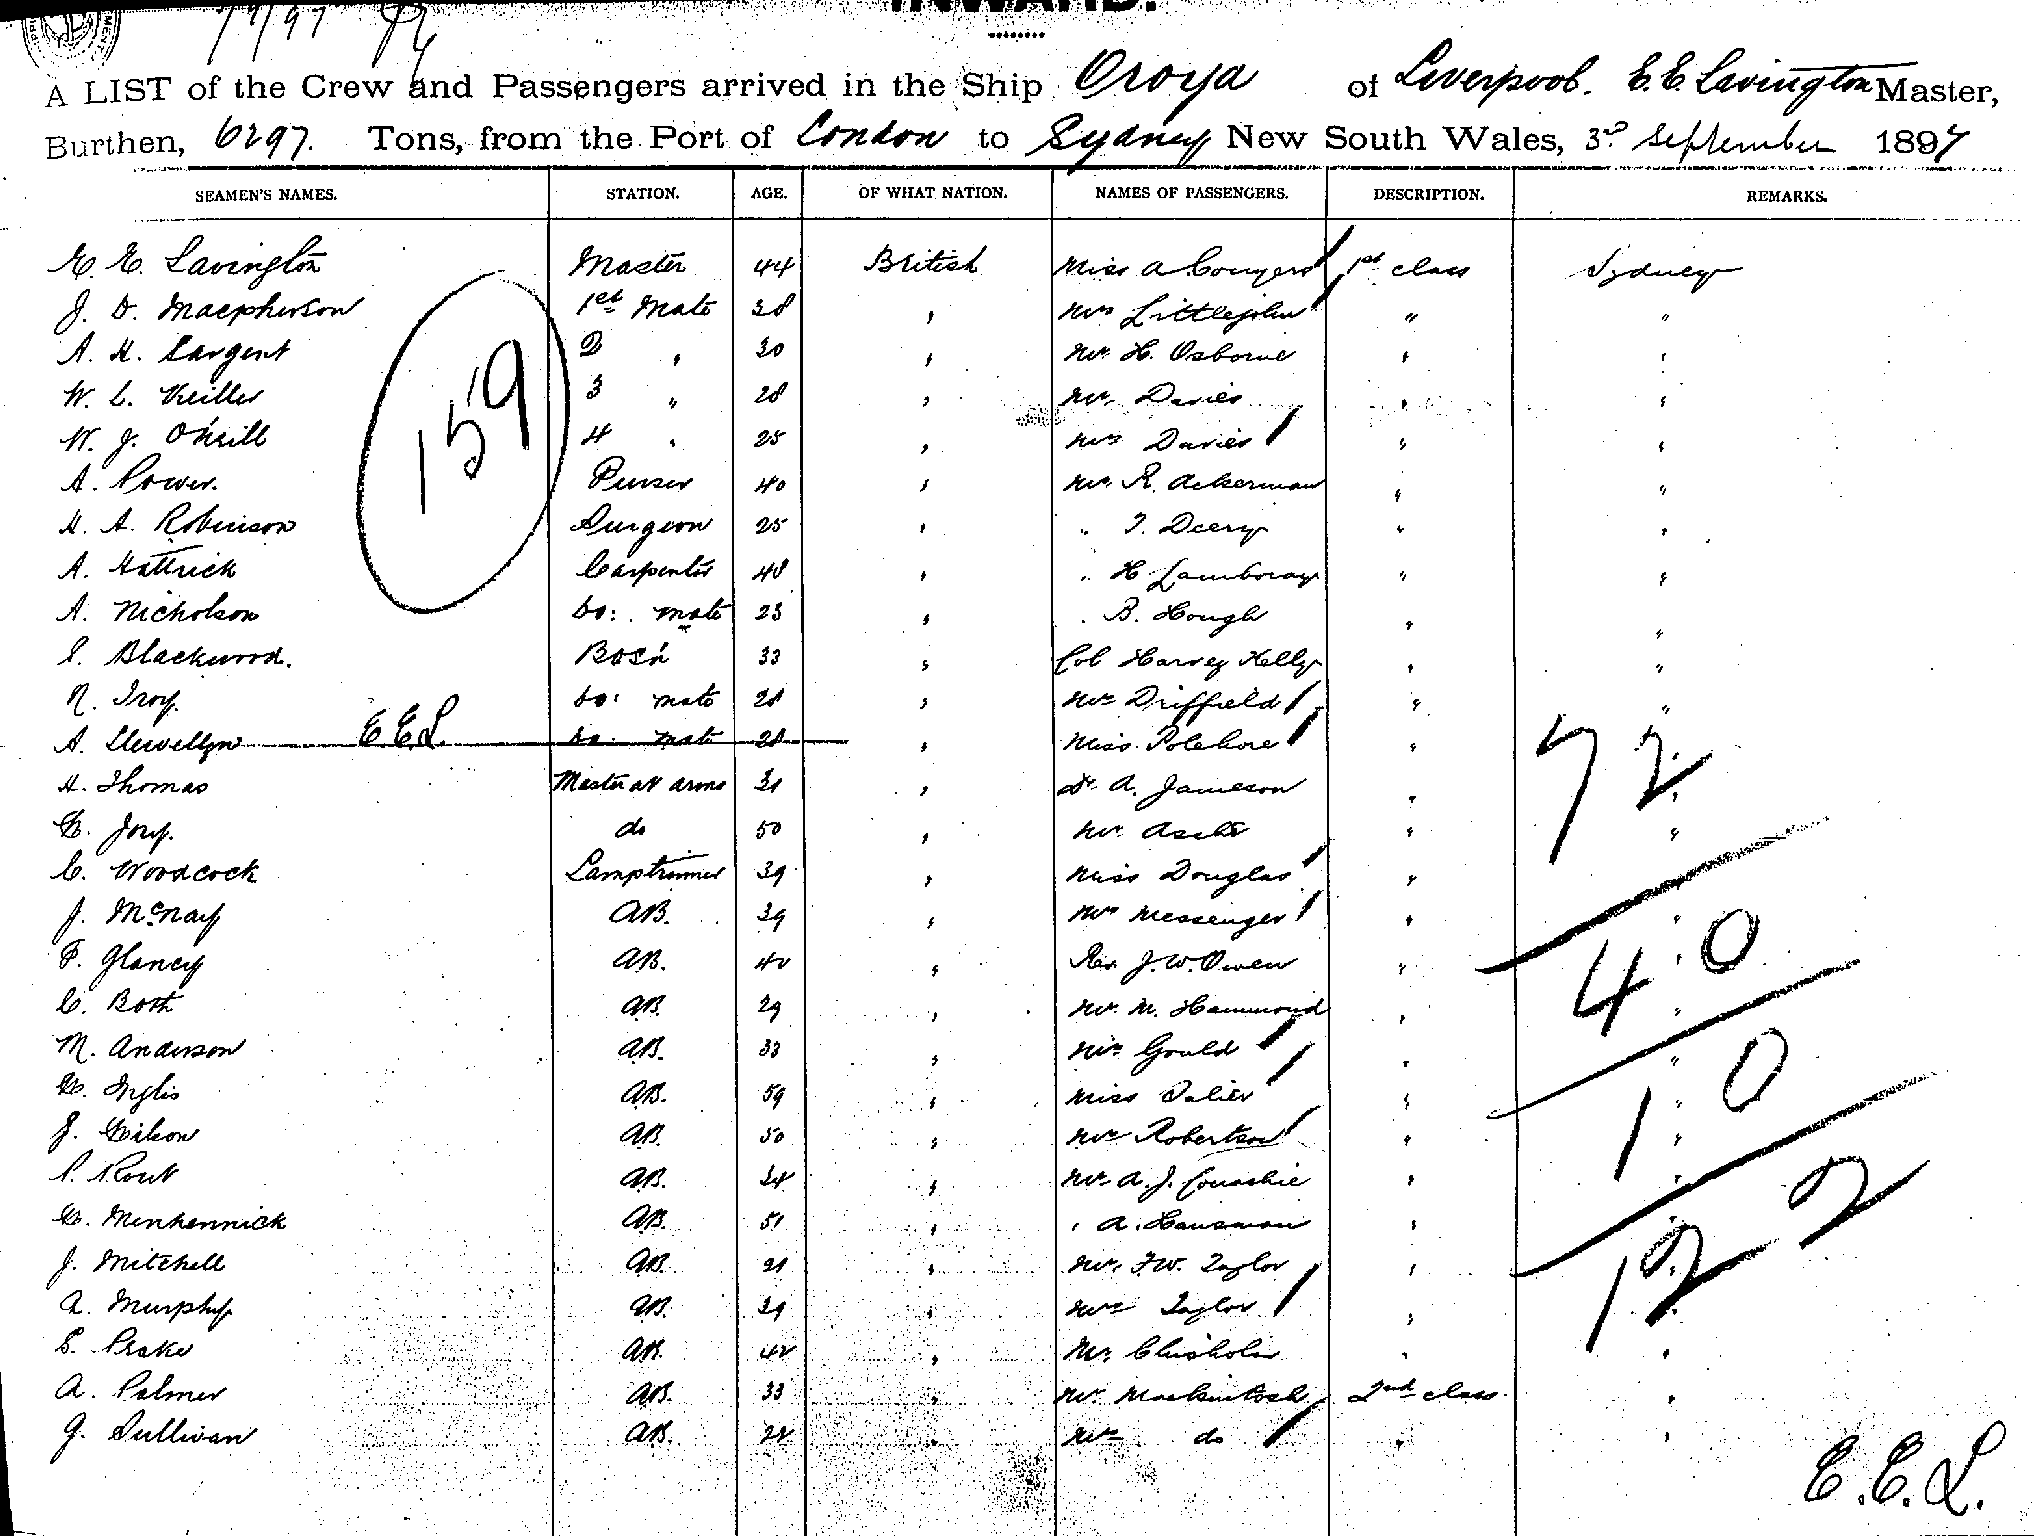 7/9/97
INWARD.
A LIST of the Crew and Passengers arrived in the Ship Oroya of Liverpool. E. E. Lavington Master,
Burthen, 6297. Tons, from the Port of London to Sydney New South Wales, 3rd September 1897
SEAMEN'S NAMES. STATION. AGE. OF WHAT NATION. NAMES OF PASSENGERS. DESCRIPTION. REMARKS.
E. E. Lavington Master 44 British Miss A Conyers 1st class Sydney
J. D. Macpherson 1st Mate 38 " Mrs Littlejohn " "
A. H. Sargent 2 " 30 " Mr. H. Osborne " "
W. L. Keiller 3 " 28 " Mr. Davies " "
W. J. O'Neill 4 " 25 " Mrs Davies " "
159
A. Power. Purser 40 " Mr. R. Ackerman " "
H. A. Robinson Surgeon 25 " " T. Deery " "
A. Hattrick Carpenter 48 " " H Lamboray " "
A. Nicholson do: mate 23 " " B. Hough " "
S. Blackwood. Bos'n 33 " Col Harvey Kelly " "
N. Troy. do: mate 28 " Mrs Driffield " "
A. Llewellyn E.E.L. do: mate 28 " Miss " "
72
H. Thomas Master at arms 31 " Dr. A. Jameson " "
E. Joy. do 50 " Mr. " "
C. Woodcock Lamptrimmer 39 " Miss Douglas " "
J. McNay AB. 39 " Mrs Messenger " "
40
P. Glancy AB. 40 " Rev J. W. Owen " "
C. Bott AB. 29 " Mr. M. Hammond " "
M. Anderson AB. 33 " Mrs Gould " "
10
E. Inglis AB. 59 " Miss " "
J. AB. 50 " Mrs Robertson " "
AB. 34 " Mr. A. J. " "
E. Menhennick AB. 51 " " A. Hausman " "
122
J. Mitchell AB. 21 " Mr. F. W. Taylor " "
A. Murphy AB. 39 " Mrs Taylor " "
AB. 42 " Mr. Chisholm " "
A. Palmer AB. 33 " Mr. Mackintosh 2nd class "
G. Sullivan AB. 22 " Mrs do " "
E.E.L.